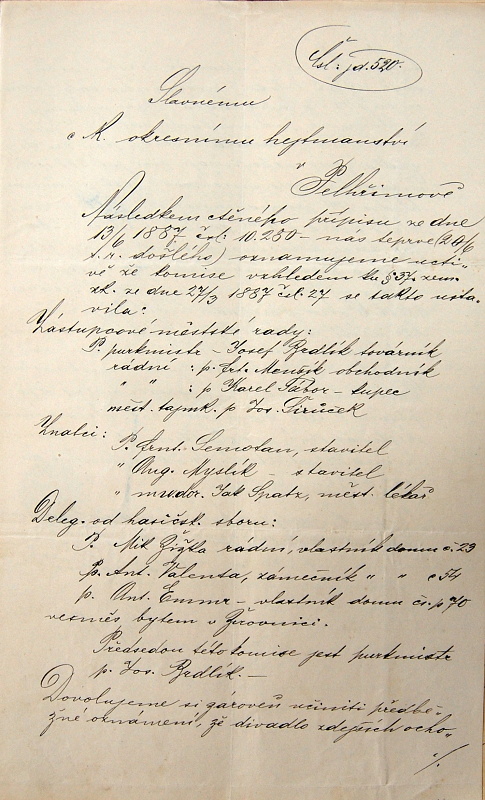 Čsl: jd. 520.
Slavnému
c k. okresnímu hejtmanství
v
Pelhřimově
Následkem ctěného přípisu ze dne
13/6 1887 čsl. 10.280 - nás teprve (24/6
t. r. došlého) oznamujeme ucti-
vě že komise vzhledem ku § 37. zem.
zk. ze dne 27/3 1887 čsl. 27 se takto usta-
vila:
Zástupcové městské rady:
P. purkmistr - Josef Brdlík továrník
rádní : p. Ant. Menšík obchodník
" " : p Karel Tábor - kupec
měst. tajmk. p Jos. Sirůček
Znalci:
P. Arnt. Semotan, stavitel
" Aug. Myslík - stavitel
" mudor. Jak Spatz, měst. lékař
Deleg. od hasičsk. sboru:
P. Mik Žižka rádní, vlastník domu č. 29
p. Ant. Valenta, zámečník " " č 54
p. Ant. Emmr - vlastník domu čs. p 70
vesměs bytem v Žirovnici.
Předsedou této komise jest purkmistr
p. Jos. Brdlík. -
Dovolujeme si zároveň učiniti předbě-
žné oznámení, že divadlo zdejších ocho-
./.